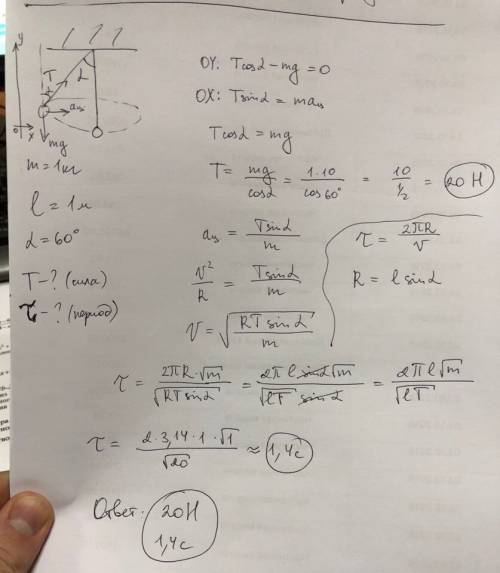 y
T
α
aц
0
x
mg
m = 1кг
l = 1м
α = 60°
T - ? (сила)
τ - ? (период)
OY: Tcosα - mg = 0
OX: Tsinα = maц
Tcosα = mg
T = mg/cosα = 1·10/cos60° = 10/½ = 20 Н
aц = Tsinα/m
v²/R = Tsinα/m
v = √(RTsinα/m)
τ = 2πR/v
R = l sinα
τ = 2πR·√m/√(RTsinα) = 2πl sinα√m/(√(lT) sinα) = 2πl√m/√(lT)
τ = 2·3,14·1·√1/√20 ≈ 1,4с
Ответ: 20Н
1,4с